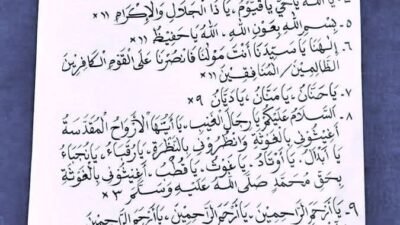 يَا اَللهُ يَا حَيُّ يَا قَيُّوْمُ، يَا ذَا الْجَلَالِ وَالْإِكْرَامِ ×١١
٥ - بِسْمِ اللهِ بِعَوْنِ اللهِ، اَللهُ يَا حَفِيْظُ ×١١
٦ - إِلٰهَنَا يَا سَيِّدَنَا أَنْتَ مَوْلٰنَا فَانْصُرْنَا عَلَى الْقَوْمِ الْكَافِرِيْنَ
الظَّالِمِيْنَ/الْمُنَافِقِيْنَ ×١١
٧ - يَا حَنَّانُ، يَا مَنَّانُ، يَا دَيَّانُ ×٩
٨ - اَلسَّلَامُ عَلَيْكُمْ يَا رِجَالَ الْغَيْبِ، يَا أَيَّتُهَا الْأَرْوَاحُ الْمُقَدَّسَةُ
أَغِيْثُوْنِيْ بِالْغَوْثَةِ وَانْظُرُوْنِيْ بِالنَّظْرَةِ، يَا رُقَبَاءُ، يَا نُجَبَاءُ
يَا أَبْدَالُ، يَا أَوْتَادُ، يَا غَوْثُ، يَا قُطْبُ، أَغِيْثُوْنِيْ بِالْغَوْثَةِ
بِحَقِّ مُحَمَّدٍ صَلَّى اللهُ عَلَيْهِ وَسَلَّمَ ×٣
٩ - يَا أَرْحَمَ الرَّاحِمِيْنَ، يَا أَرْحَمَ الرَّاحِمِيْنَ، يَا أَرْحَمَ الرَّاحِمِيْنَ